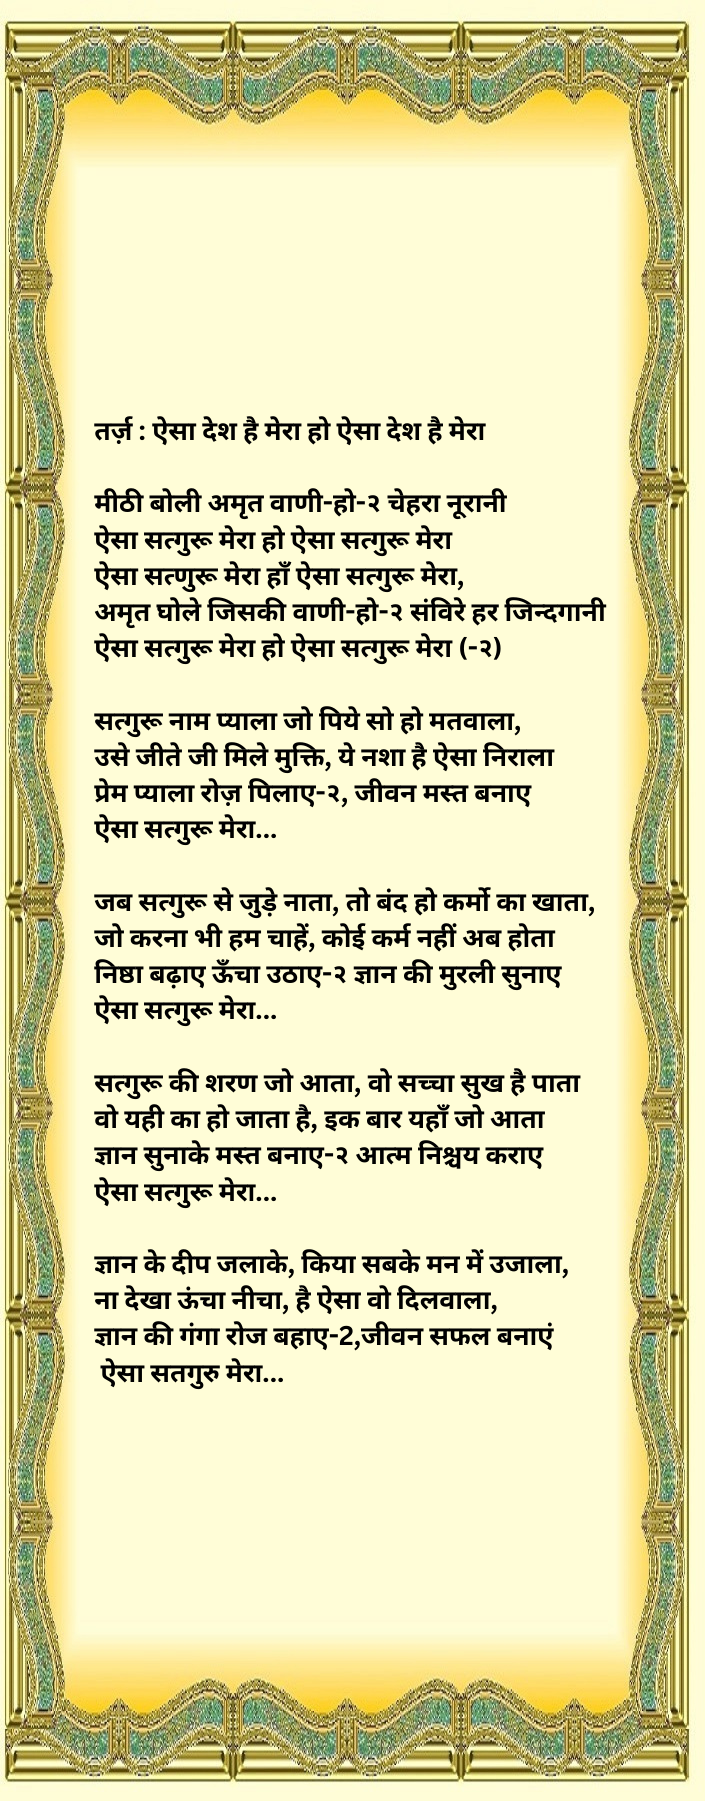 तर्ज़ : ऐसा देश है मेरा हो ऐसा देश है मेरा
मीठी बोली अमृत वाणी-हो-२ चेहरा नूरानी
ऐसा सत्गुरू मेरा हो ऐसा सत्गुरू मेरा
ऐसा सत्णुरू मेरा हाँ ऐसा सत्गुरू मेरा,
अमृत घोले जिसकी वाणी-हो-२ संविरे हर जिन्दगानी
ऐसा सत्गुरू मेरा हो ऐसा सत्गुरू मेरा (-२)
सत्गुरू नाम प्याला जो पिये सो हो मतवाला,
उसे जीते जी मिले मुक्ति, ये नशा है ऐसा निराला
प्रेम प्याला रोज़ पिलाए-२, जीवन मस्त बनाए
ऐसा सत्गुरू मेरा...
जब सत्गुरू से जुड़े नाता, तो बंद हो कर्मो का खाता,
जो करना भी हम चाहें, कोई कर्म नहीं अब होता
निष्ठा बढ़ाए ऊँचा उठाए-२ ज्ञान की मुरली सुनाए
ऐसा सत्गुरू मेरा...
सत्गुरू की शरण जो आता, वो सच्चा सुख है पाता
वो यही का हो जाता है, इक बार यहाँ जो आता
ज्ञान सुनाके मस्त बनाए-२ आत्म निश्चय कराए
ऐसा सत्गुरू मेरा...
ज्ञान के दीप जलाके, किया सबके मन में उजाला,
ना देखा ऊंचा नीचा, है ऐसा वो दिलवाला,
ज्ञान की गंगा रोज बहाए-2,जीवन सफल बनाएं
ऐसा सतगुरु मेरा...